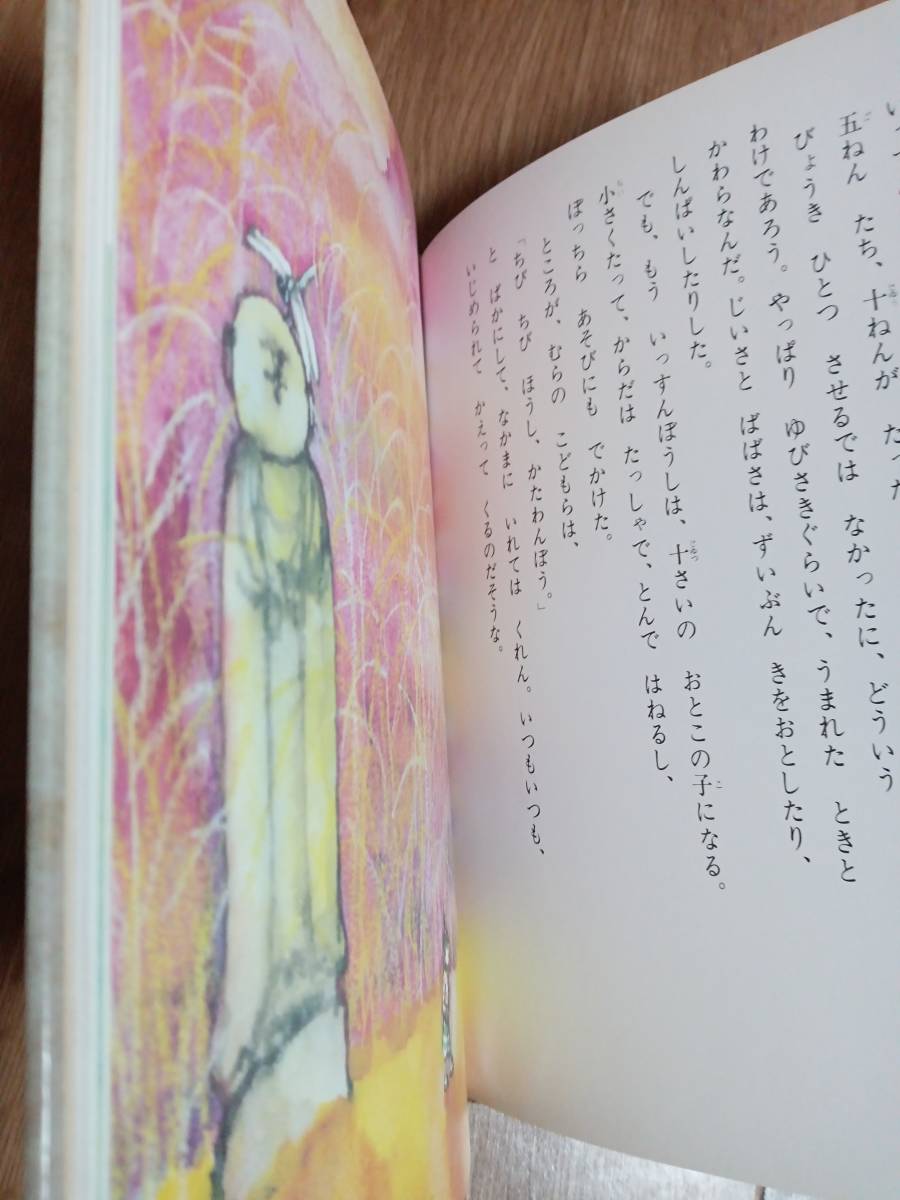 五ねん たち、十ねんが たった
びょうき ひとつ させるでは なかったに、どういう
わけであろう。やっぱり ゆびさきぐらいで、うまれた ときと
かわらなんだ。じいさと ばばさは、ずいぶん きをおとしたり、
しんぱいしたりした。
でも、もう いっすんぼうしは、十さいの おとこの子になる。
小さくたって、からだは たっしゃで、とんで はねるし、
ぼっちら あそびにも でかけた。
ところが、むらの こどもらは、
「ちび ちび ほうし、かたわんぼう。」
と ばかにして、なかまに いれては くれん。いつもいつも、
いじめられて かえって くるのだそうな。